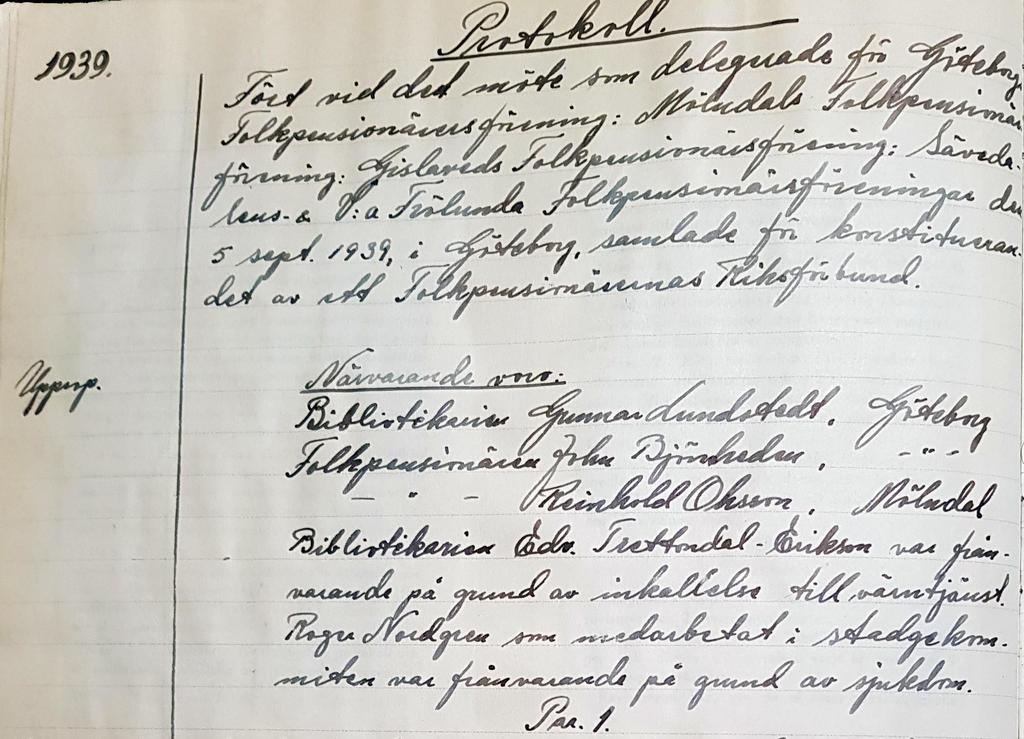 Protokoll.
1939.
Fört vid det möte som delegerade för Göteborgs
Folkpensionärersförening: Mölndals Folkpensionärs
förening: Gislaveds Folkpensionärsförening: Säveda-
lens- & V:a Frölunda Folkpensionärsföreningar den
5 sept. 1939, i Göteborg, samlade för konstitueran-
det av ett Folkpensionärernas Riksförbund.
Upprop.
Närvarande voro:
Bibliotekarien Gunnar Lundstedt, Göteborg
Folkpensionären John Björnheden, -"-
- " - Reinhold Olsson, Mölndal
Bibliotekarien Edv. Trettondal-Erikson var från-
varande på grund av inkallelse till värntjänst.
Roger Nordgren som medarbetat i stadgekom-
miten var frånvarande på grund av sjukdom.
Par. 1.